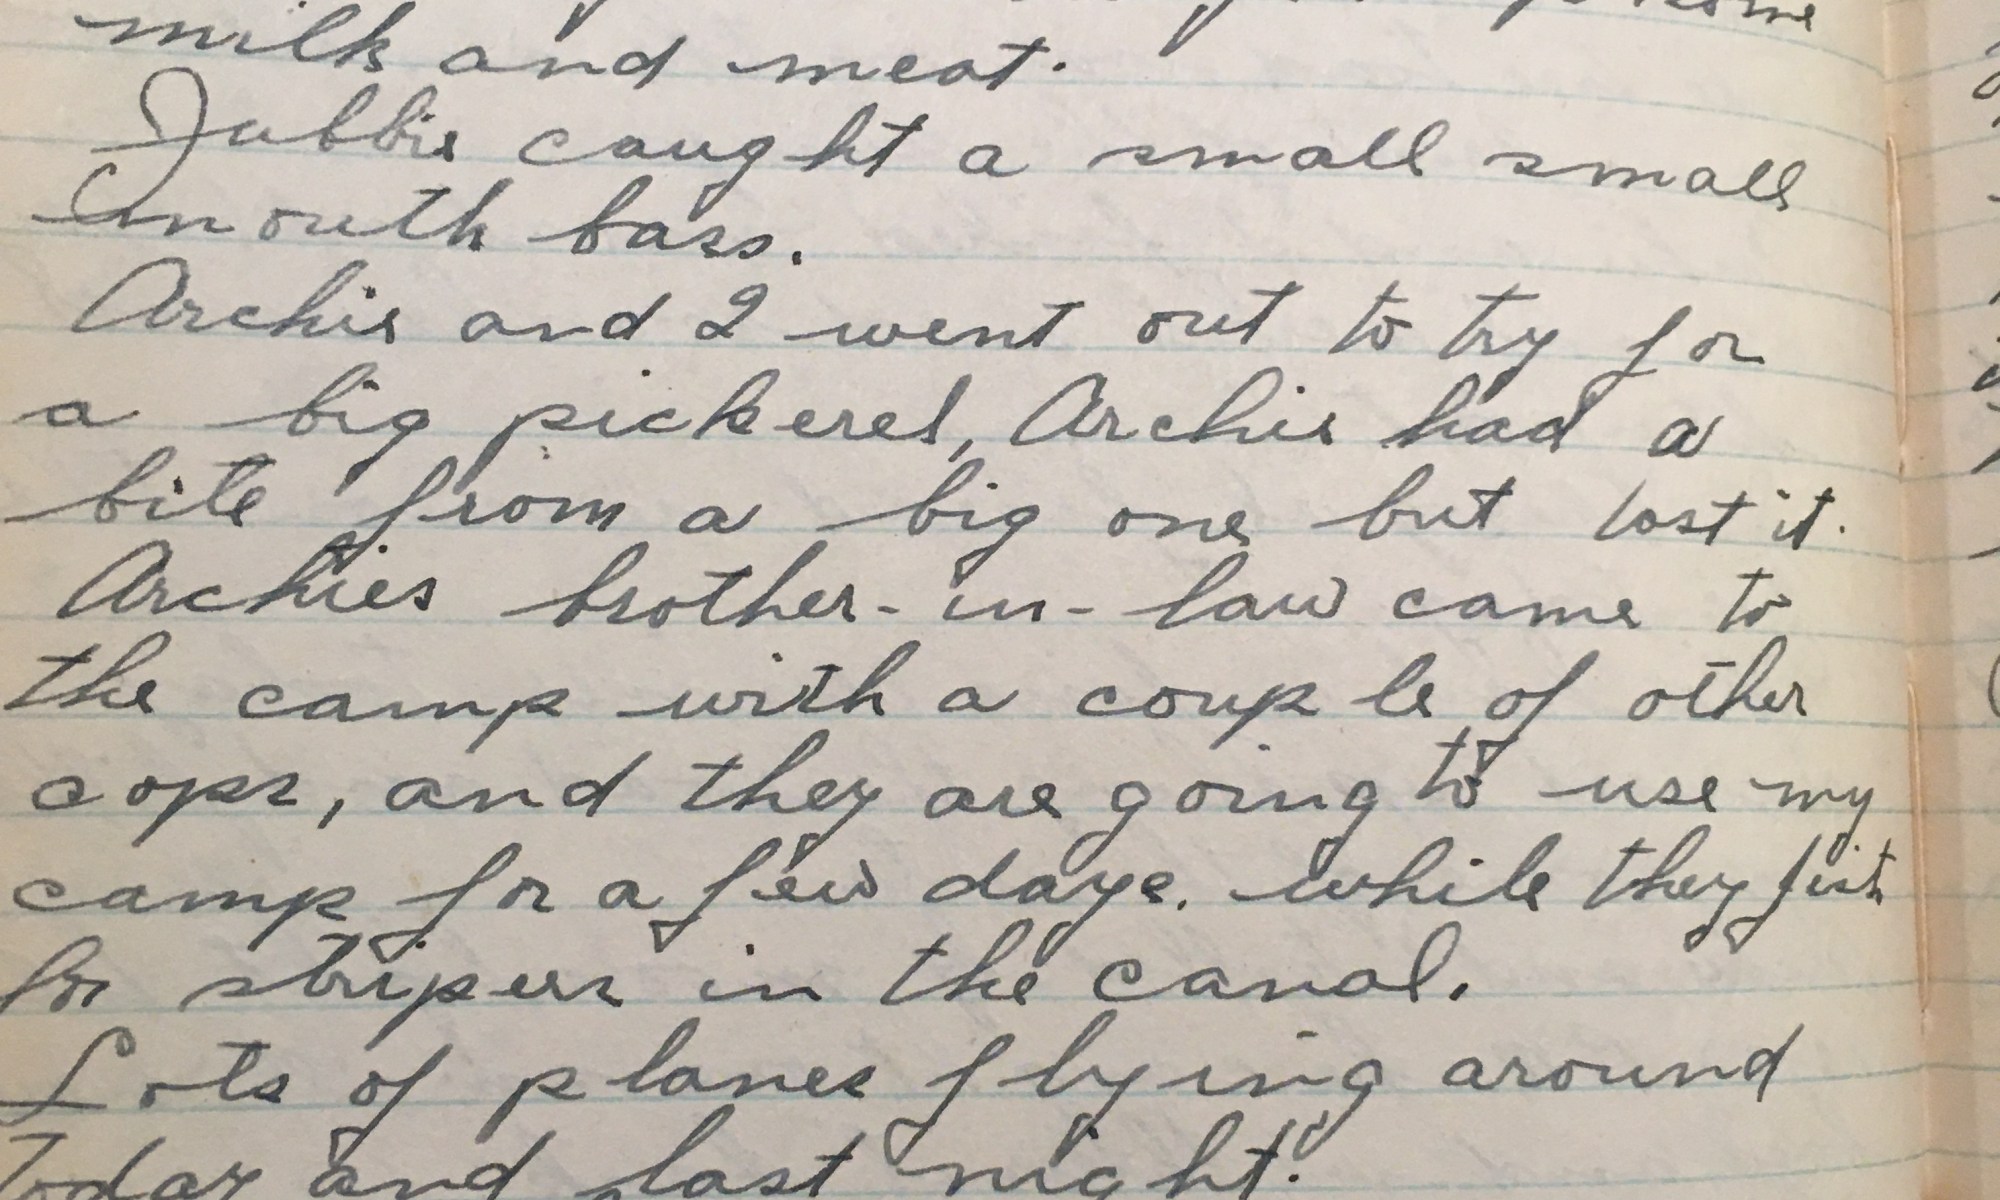 home
milk and meat.
Jubbie caught a small small
mouth bass.
Archie and I went out to try for
a big pickerel, Archie had a
bite from a big one but lost it.
Archies brother-in-law came to
the camp with a couple of other
cops, and they are going to use my
camp for a few days. while they fish
for stripers in the canal.
Lots of planes flying around
Today and last night.